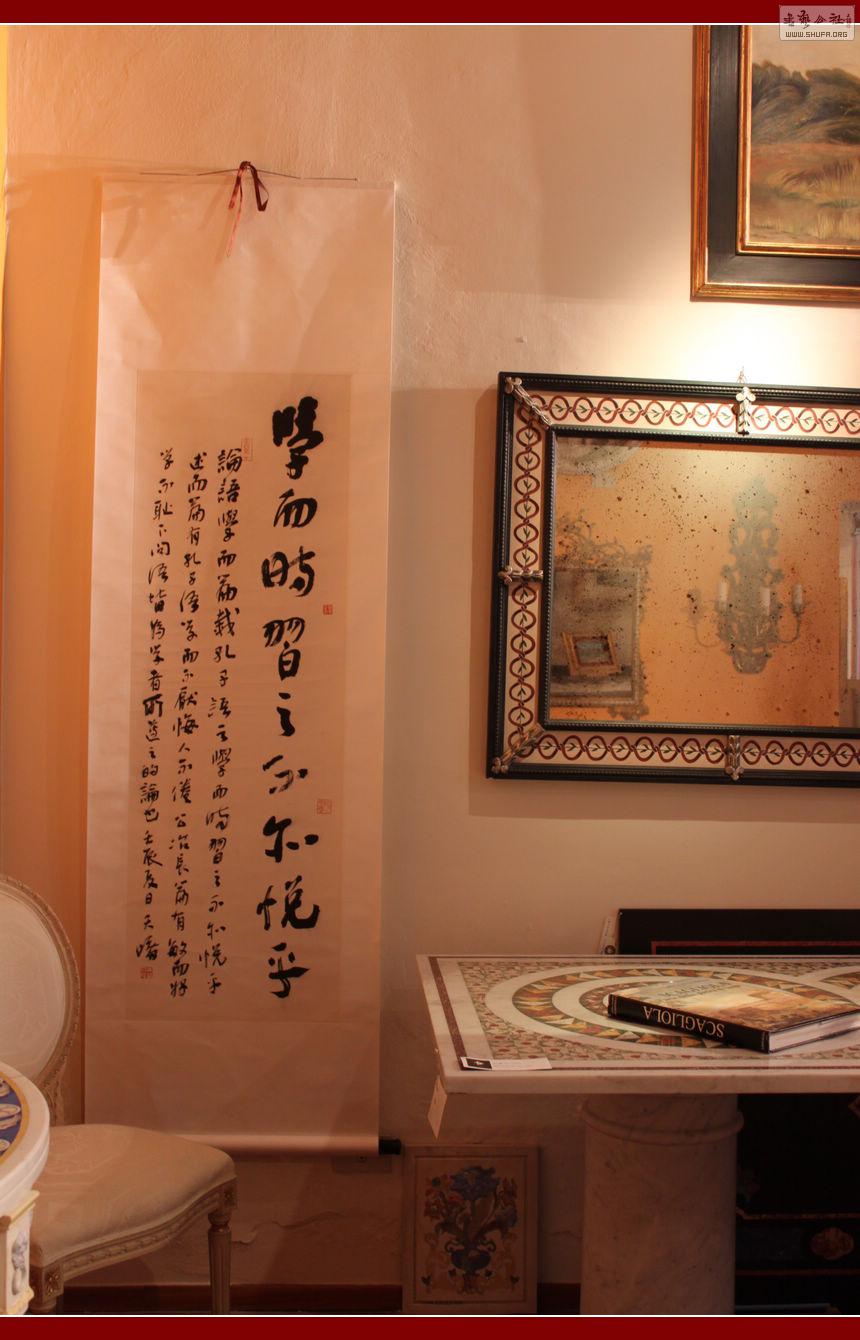 學而時習之不亦悅乎
論語學而篇載孔子語之學而時習之不亦悅乎
述而篇有孔子語學而不厭悔人不倦公冶長篇有敏而好
学不耻下问语皆為学者所道之的論也壬辰夏日天
SCAGLIOLA
WWW.SHUFA.ORG